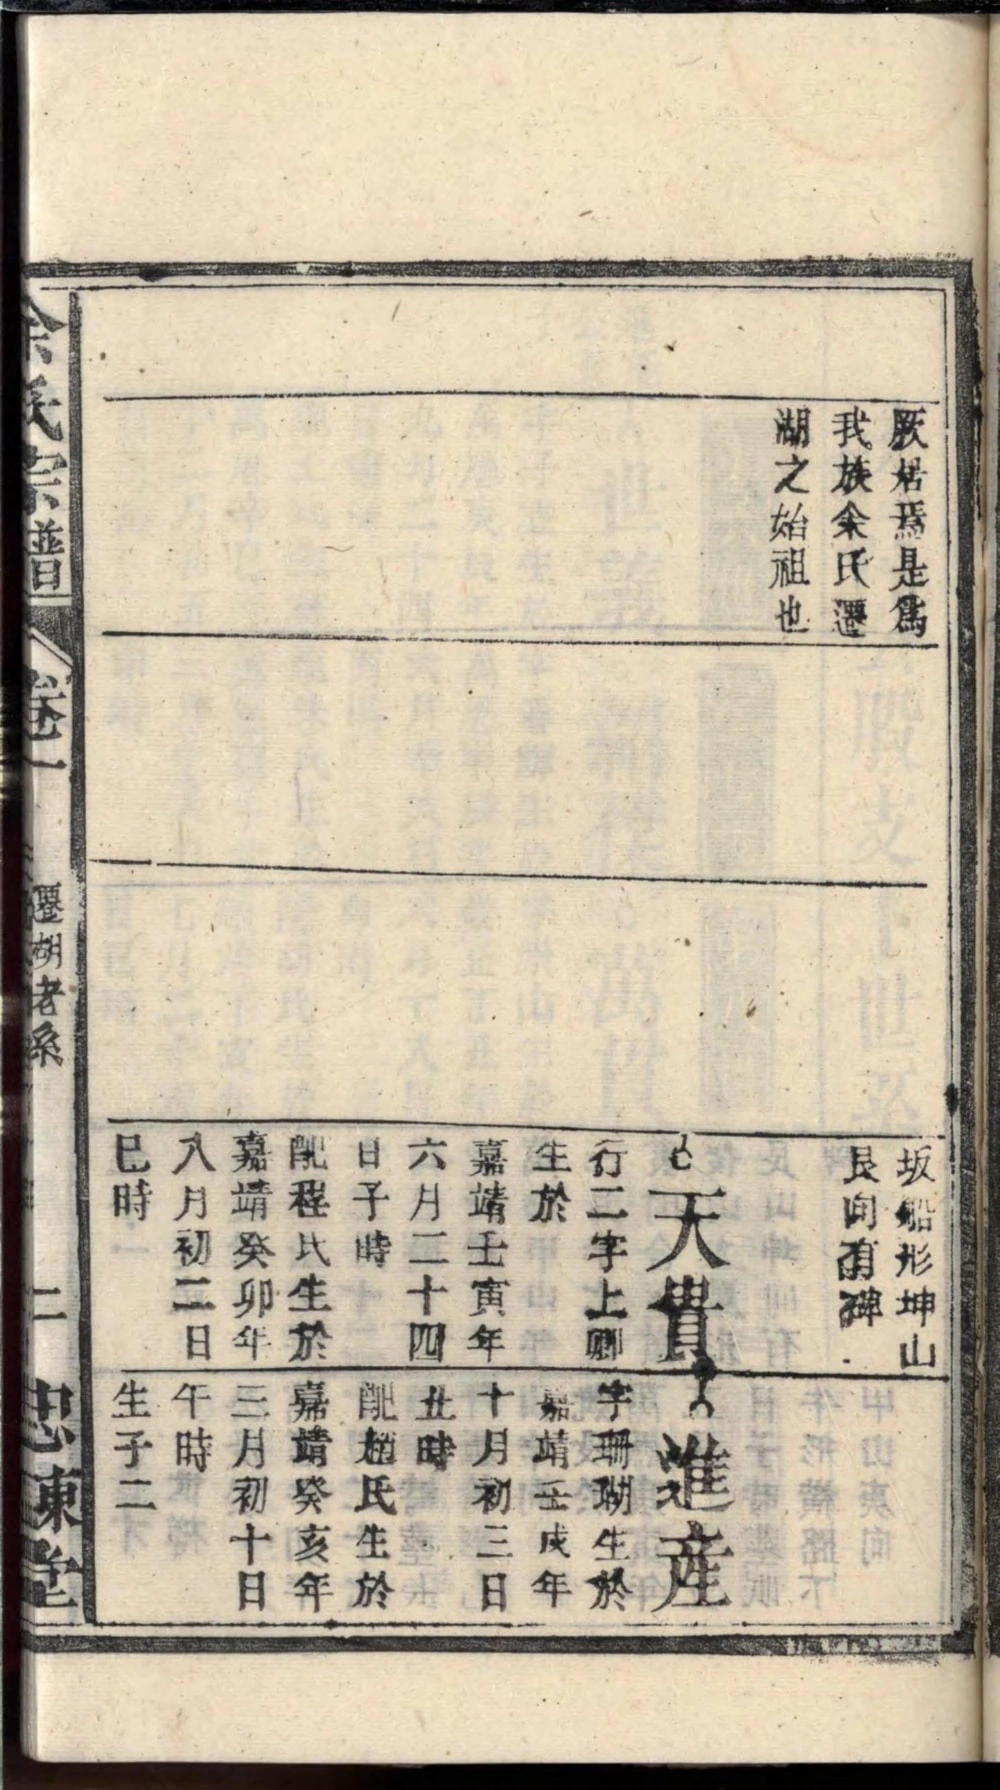 厥居焉是爲
我族余氏遷
湖之始祖也
坂船形坤山
艮向有碑
天貴
行二字上卿
生於
嘉靖壬寅年
六月二十四
日子時
配程氏生於
嘉靖癸卯年
八月初二日
巳時
進產
字珊瑚生於
嘉靖壬戌年
十月初三日
丑時
配趙氏生於
嘉靖癸亥年
三月初十日
午時
生子二
余氏宗譜
卷一
遷湖老系
二
忠陳堂